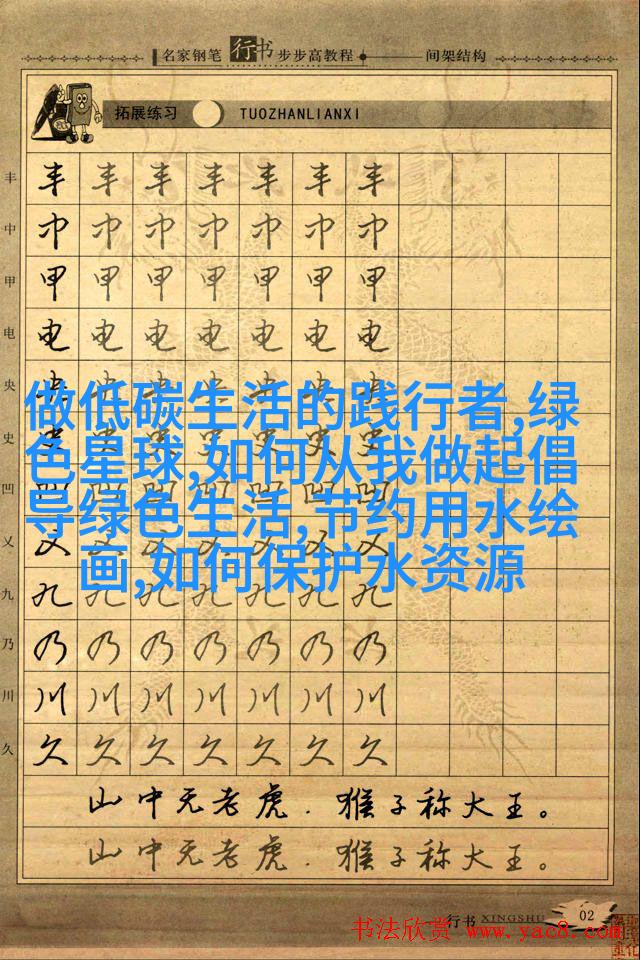 名家钢笔行书步步高教程 间架结构
拓展练习 TUOZHANLIANXI
丰 丰 丰 丰 丰 丰 丰 丰
中 中 中 中 中 中 中 中
甲 甲 甲 甲 甲 甲 甲 甲
电 电 电 电 电 电 电 电
央 央 央 央 央 央 央 央
做低碳生活的践行者,绿
史 史 史 史 史 史 史 史
色星球,如何从我做起倡
凹 凹 凹 凹 凹 凹 凹 凹
导绿色生活,节约用水绘
乂 乂 乂 乂 乂 乂 乂 乂
画,如何保护水资源
九 九 九 九 九 九 九 九
乃 乃 乃 乃 乃 乃 乃 乃
川 川 川 川 川 川 川 川
久 久 久 久 久 久 久 久
山中无老虎.猴子称大王。
山中无老虎.猴子称大王。
行书 XINGSHU 02
书法欣赏 www.yac8.com